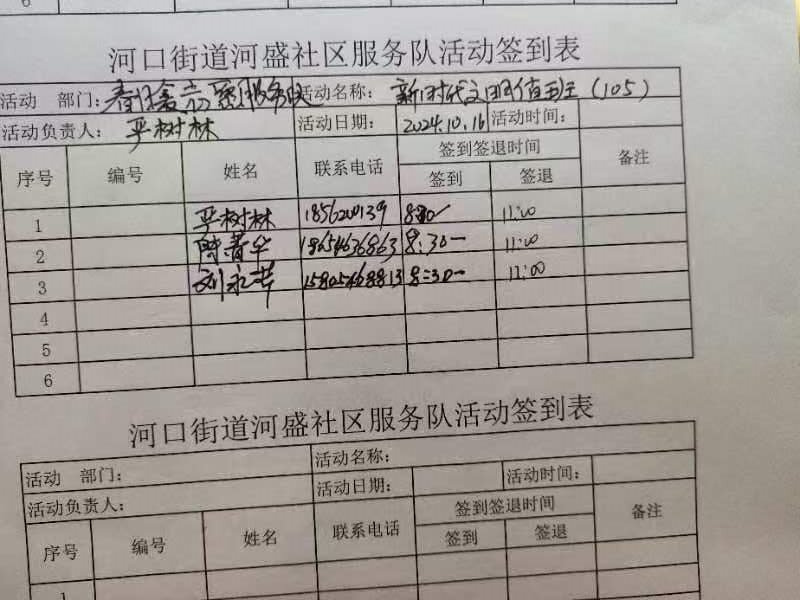 6
河口街道河盛社区服务队活动签到表
活动 部门: 服务队 活动名称: 新时代文明值班(105)
活动负责人: 严树林 活动日期: 2024.10.16 活动时间:
序号 编号 姓名 联系电话 签到签退时间 备注
签到 签退
1 严树林 11:00
2 8:30 11:00
3 15805468813 8:30 11:00
4
5
6
河口街道河盛社区服务队活动签到表
活动 部门: 活动名称:
活动负责人: 活动日期: 活动时间:
序号 编号 姓名 联系电话 签到签退时间 备注
签到 签退
1